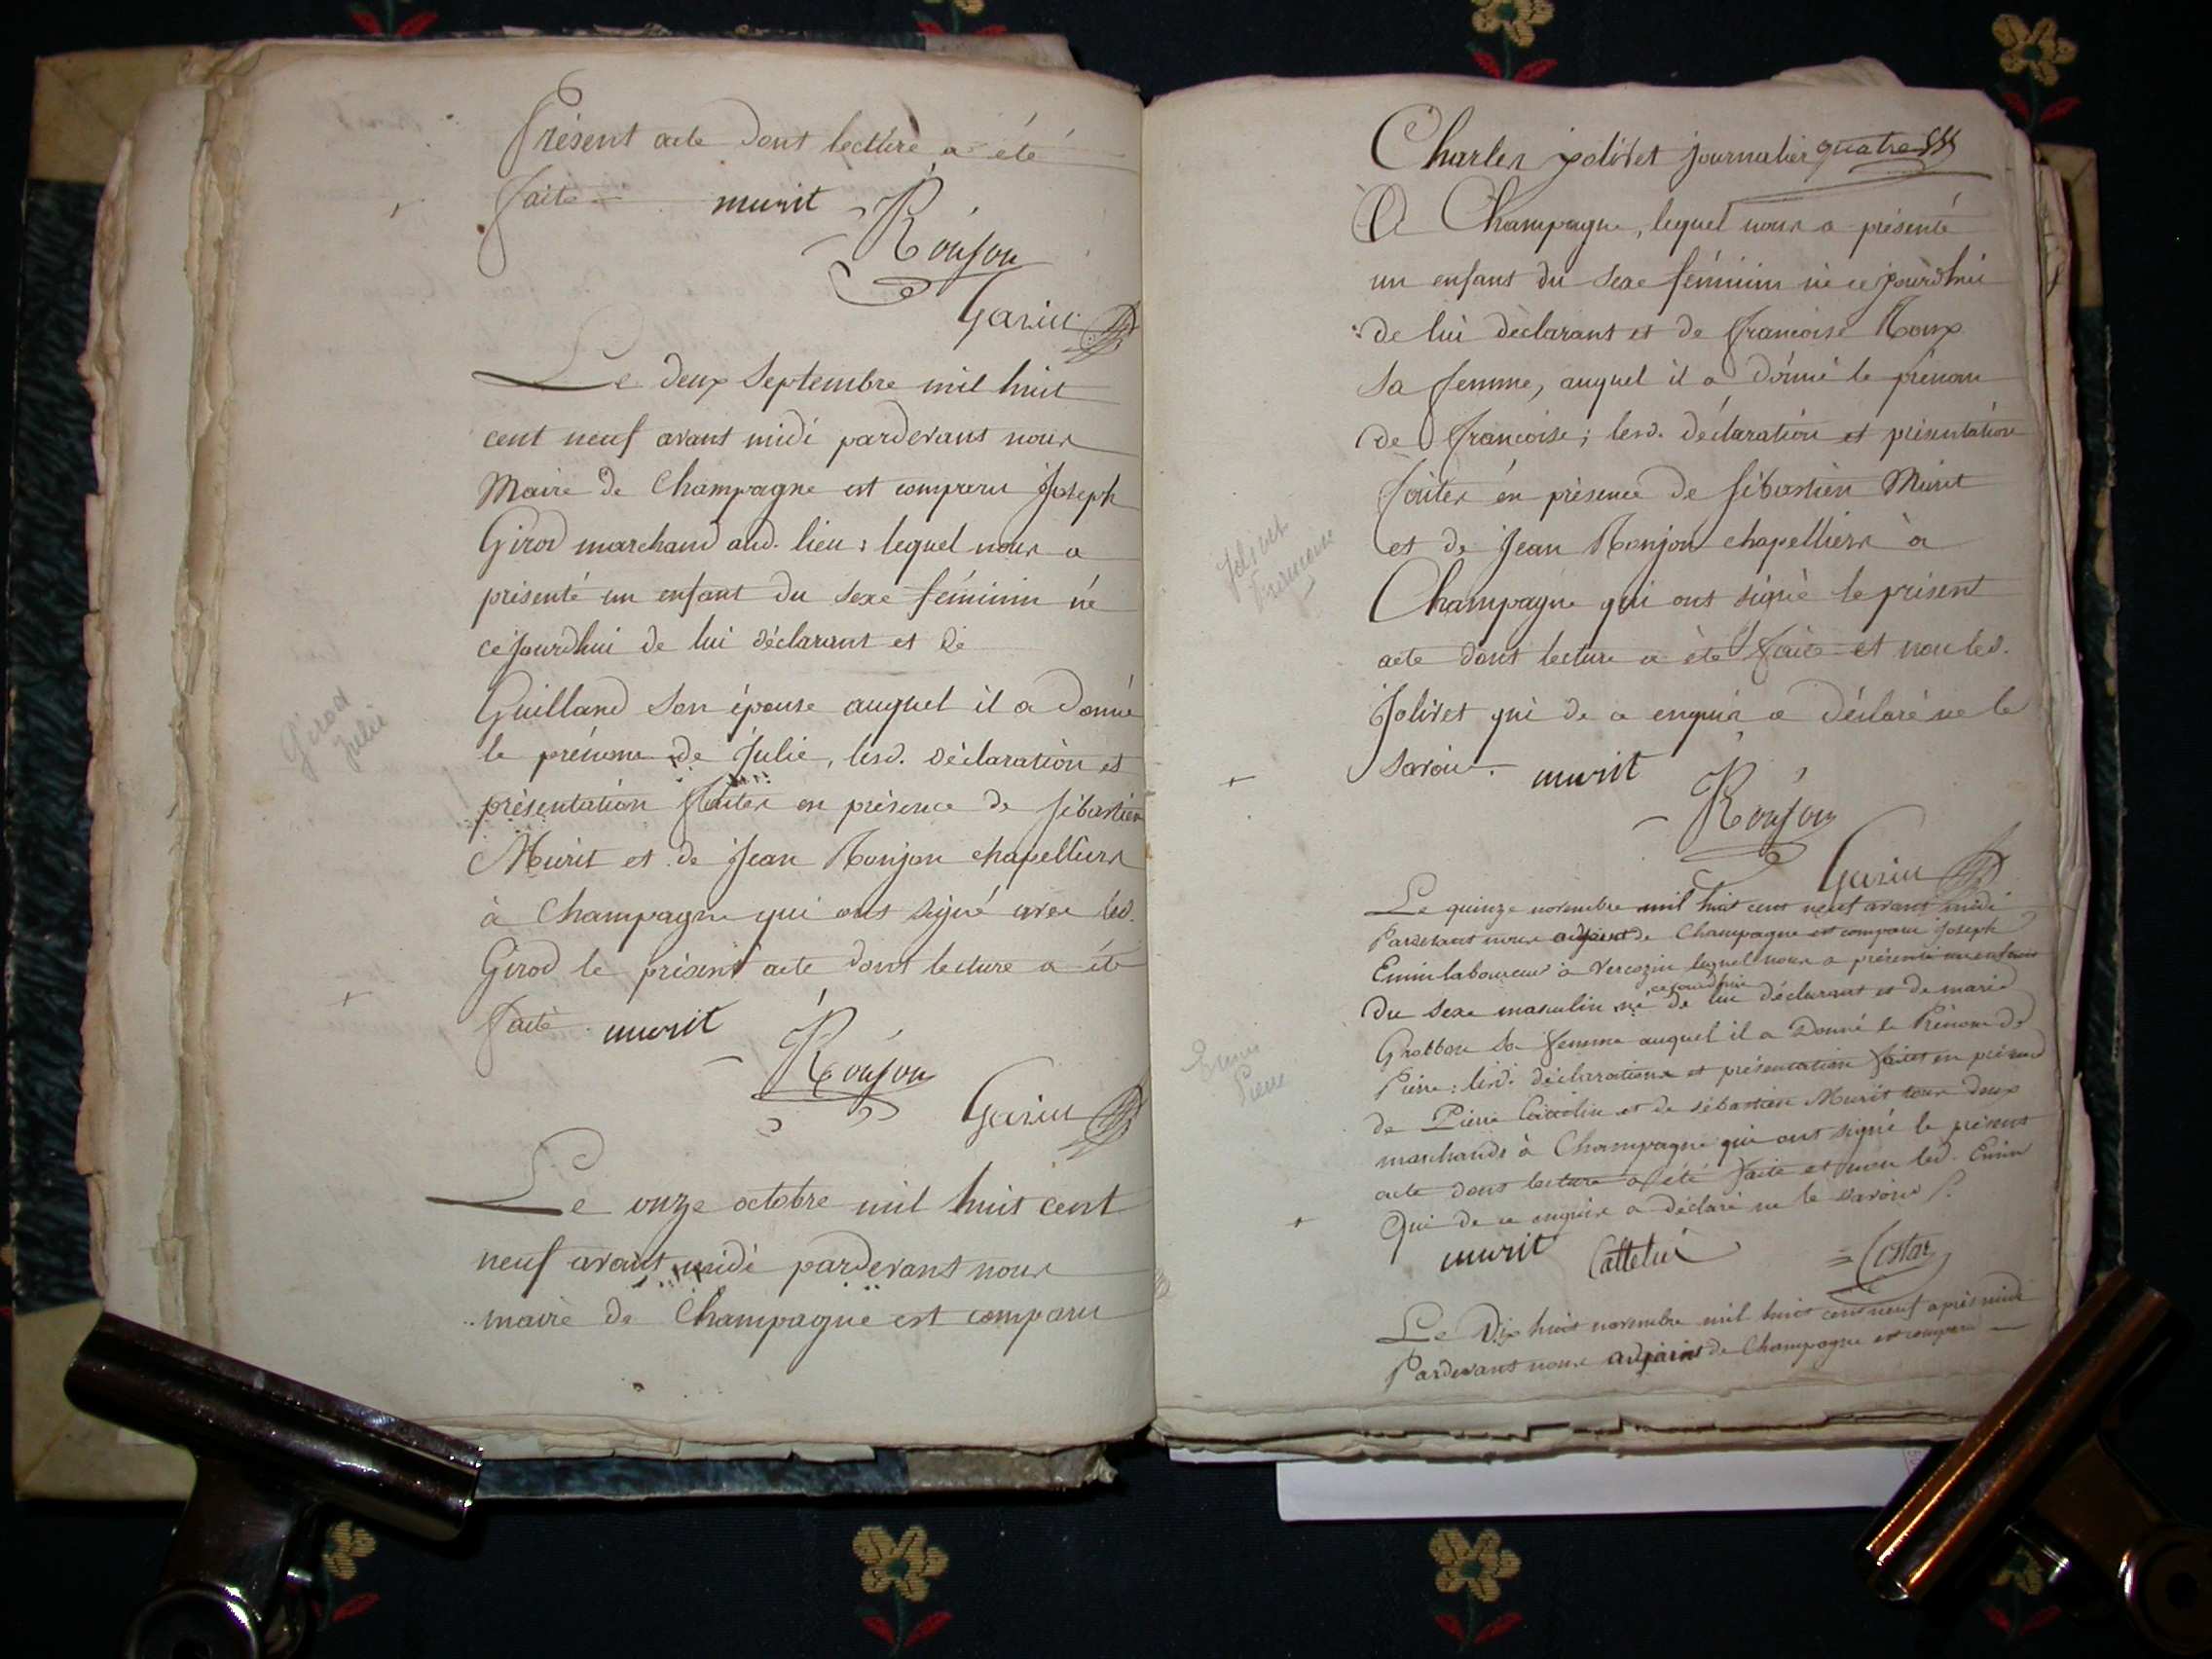 Présent acte dont lecture a été
faite murit
Ronjon
Garin
Le deux Septembre mil huit
cent neuf avant midi pardevant nous
Maire de Champagne est comparu Joseph
Girod marchand aud. lieu : lequel nous a
présenté un enfant du sexe féminin né
cejourdhui de lui déclarant et de
Guilland son épouse auquel il a donné
le prénom de Julie, lesd. déclaration et
présentation faites en présence de Sébastien
Murit et de Jean Ronjon chapelliers
à Champagne qui ont signé avec led.
Girod le présent acte dont lecture a été
faite. murit
Ronjon
Garin
Le onze octobre mil huit cent
neuf avant midi pardevant nous
maire de Champagne est comparu
Girod
Julie
Charles jolivet journalier quatre
A Champagne, lequel nous a présenté
un enfant du sexe féminin né cejourdhui
de lui déclarant et de françoise Roux
sa femme, auquel il a donné le prénom
de françoise ; lesd. déclaration et présentation
faites en présence de Sébastien Murit
et de Jean Ronjon chapelliers à
Champagne qui ont signé le présent
acte dont lecture a été faite et non led.
Jolivet qui de ce enquis a déclaré ne le
savoir. murit
Ronjon
Garin
Jolivet
Francoise
Le quinze novembre mil huit cent neuf avant midi
Pardevant nous adjoint de Champagne est comparu Joseph
Emin laboureur à Vercozin lequel nous a présenté un enfant
du sexe masculin né cejourdhui de lui déclarant et de marie
Grobbon sa femme auquel il a Donné le Prénom de
Pierre : lesd. déclarations et présentation faites en présence
de Pierre et de sébastien Murit tous deux
marchands à Champagne qui ont signé le présent
acte dont lecture a été faite et non led. Emin
Qui de ce enquis a déclaré ne le savoir
murit Cattelin Costaz
Emin
Pierre
Le Dix huit novembre mil huit cent neuf après midi
Pardevant nous adjoint de Champagne est comparu